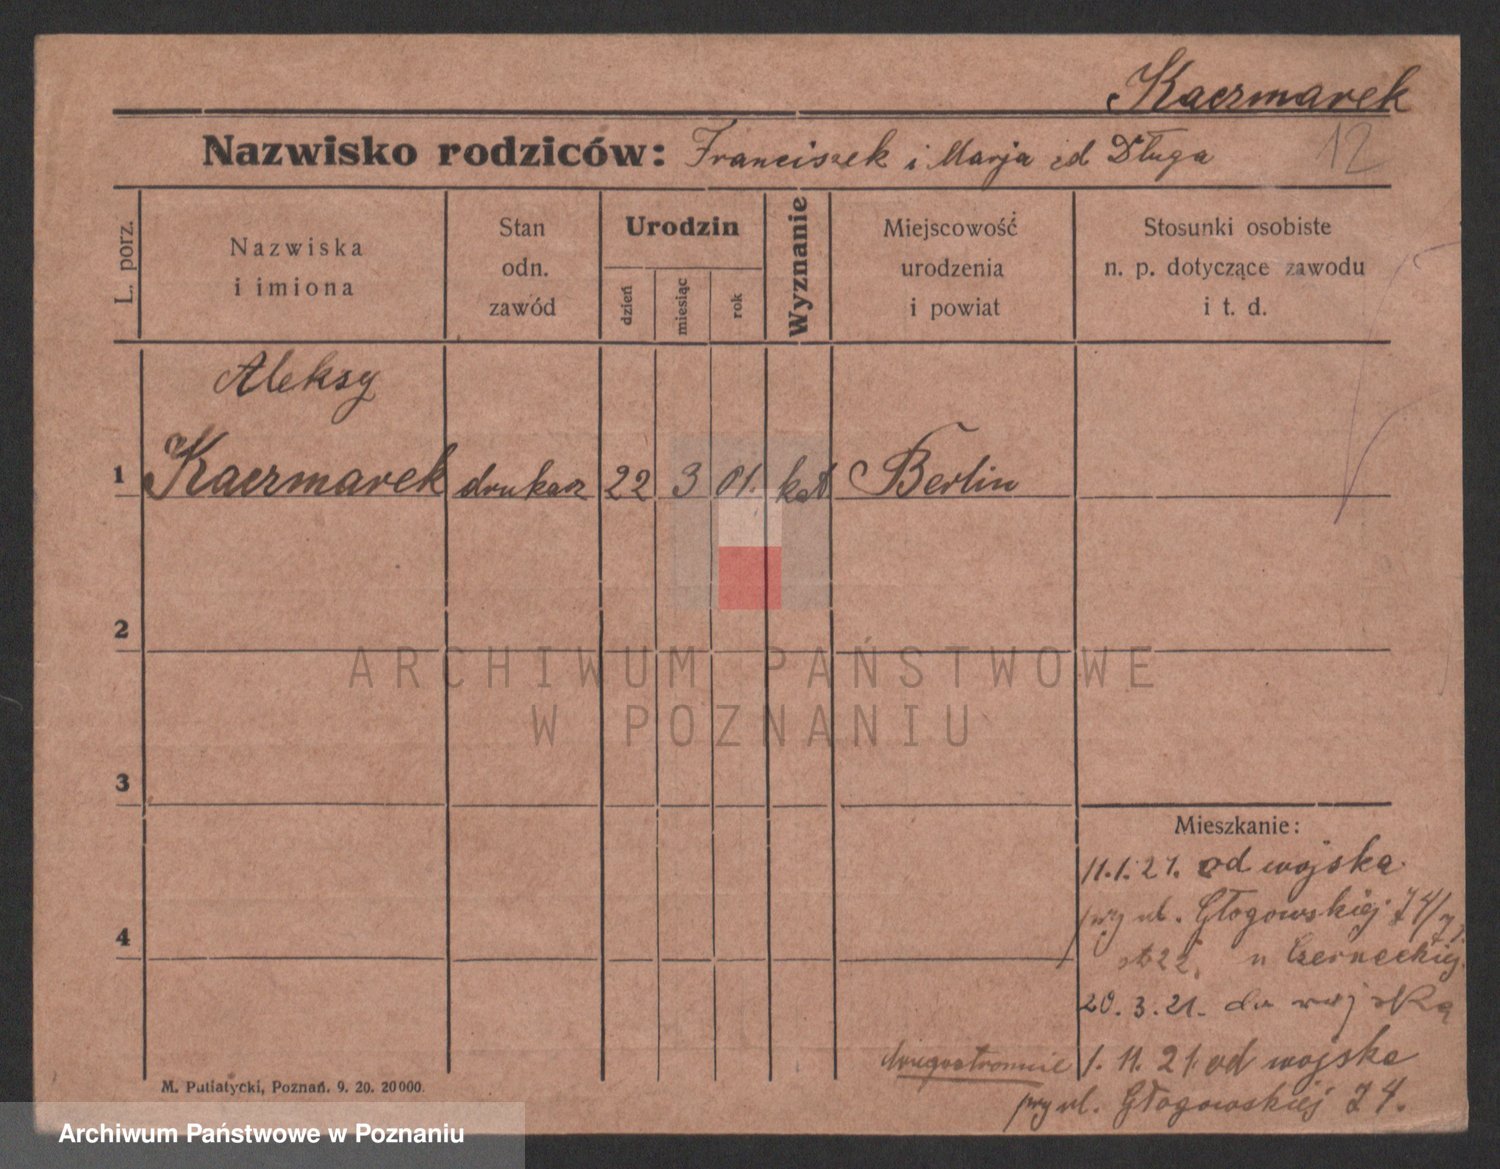 Kaczmarek
12
Nazwisko rodziców: Franciszek i Marja zd Długa
L. porz.
Nazwiska
i imiona
Stan
odn.
zawód
Urodzin
dzień
miesiąc
rok
Wyznanie
Miejscowość
urodzenia
i powiat
Stosunki osobiste
n. p. dotyczące zawodu
i t. d.
Aleksy
1 Kaczmarek drukarz 22 3 01. kat Berlin
2
3
4
ARCHIWUM PAŃSTWOWE
W POZNANIU
Mieszkanie:
11.1.21. od wojska
przy ul. Głogowskiej 74/
22, u Czerneckiej
20.3.21. do wojska
drugostronnie 1.11.21. od wojska
przy ul. Głogowskiej 74.
M. Putiatycki, Poznań. 9. 20. 20000.
Archiwum Państwowe w Poznaniu